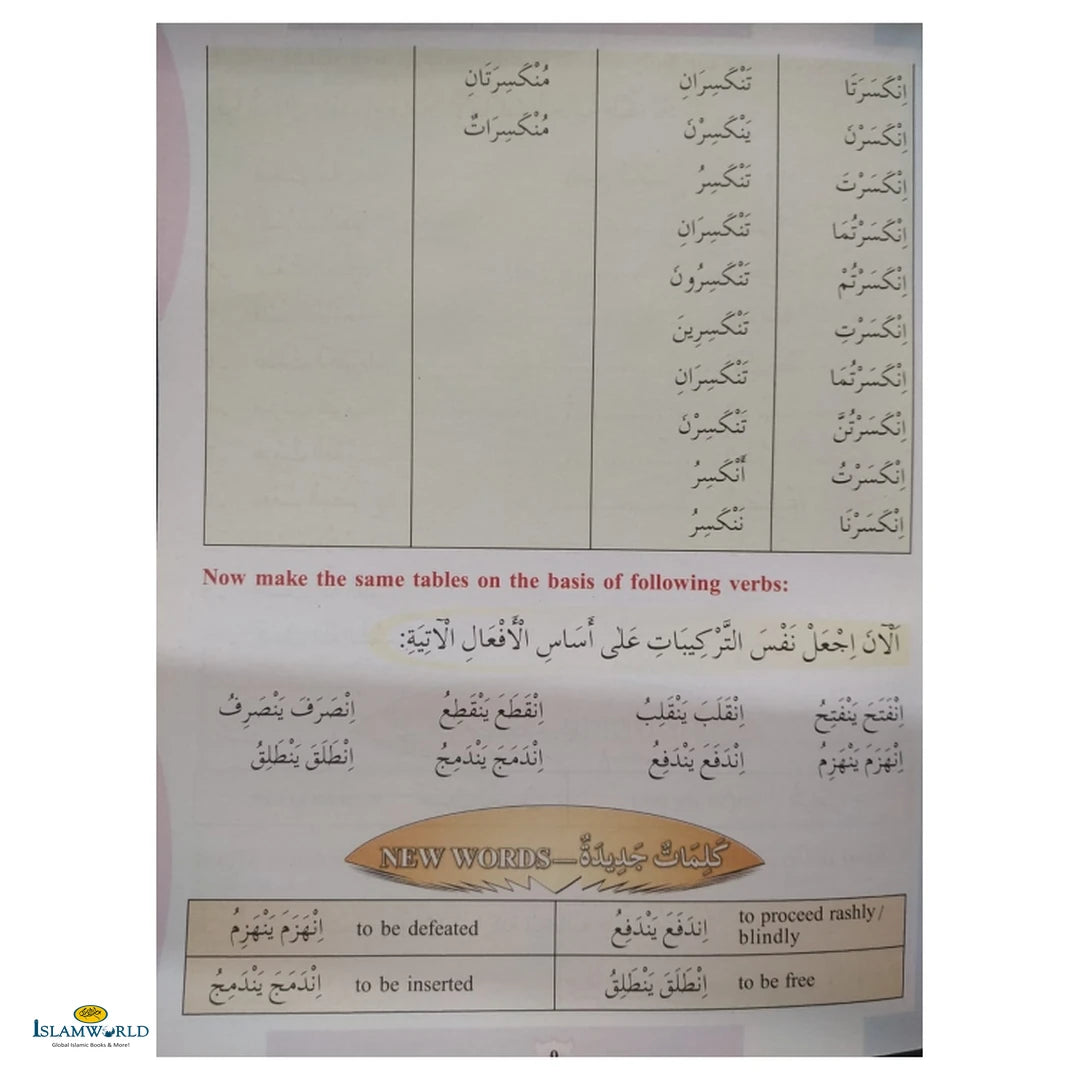 اِنْكَسَرَتَا تَنْكَسِرَانِ مُنْكَسِرَتَانِ
اِنْكَسَرْنَ يَنْكَسِرْنَ مُنْكَسِرَاتٌ
اِنْكَسَرْتَ تَنْكَسِرُ
اِنْكَسَرْتُمَا تَنْكَسِرَانِ
اِنْكَسَرْتُمْ تَنْكَسِرُونَ
اِنْكَسَرْتِ تَنْكَسِرِينَ
اِنْكَسَرْتُمَا تَنْكَسِرَانِ
اِنْكَسَرْتُنَّ تَنْكَسِرْنَ
اِنْكَسَرْتُ أَنْكَسِرُ
اِنْكَسَرْنَا نَنْكَسِرُ
Now make the same tables on the basis of following verbs:
اَلْآنَ اِجْعَلْ نَفْسَ التَّرْكِيبَاتِ عَلٰى أَسَاسِ الْأَفْعَالِ الْآتِيَةِ:
اِنْفَتَحَ يَنْفَتِحُ اِنْقَلَبَ يَنْقَلِبُ اِنْقَطَعَ يَنْقَطِعُ اِنْصَرَفَ يَنْصَرِفُ
اِنْهَزَمَ يَنْهَزِمُ اِنْدَفَعَ يَنْدَفِعُ اِنْدَمَجَ يَنْدَمِجُ اِنْطَلَقَ يَنْطَلِقُ
NEW WORDS—كَلِمَاتٌ جَدِيدَةٌ
اِنْهَزَمَ يَنْهَزِمُ to be defeated اِندَفَعَ يَنْدَفِعُ to proceed rashly/
blindly
اِنْدَمَجَ يَنْدَمِجُ to be inserted اِنْطَلَقَ يَنْطَلِقُ to be free
ISLAMWORLD
Global Islamic Books & More!